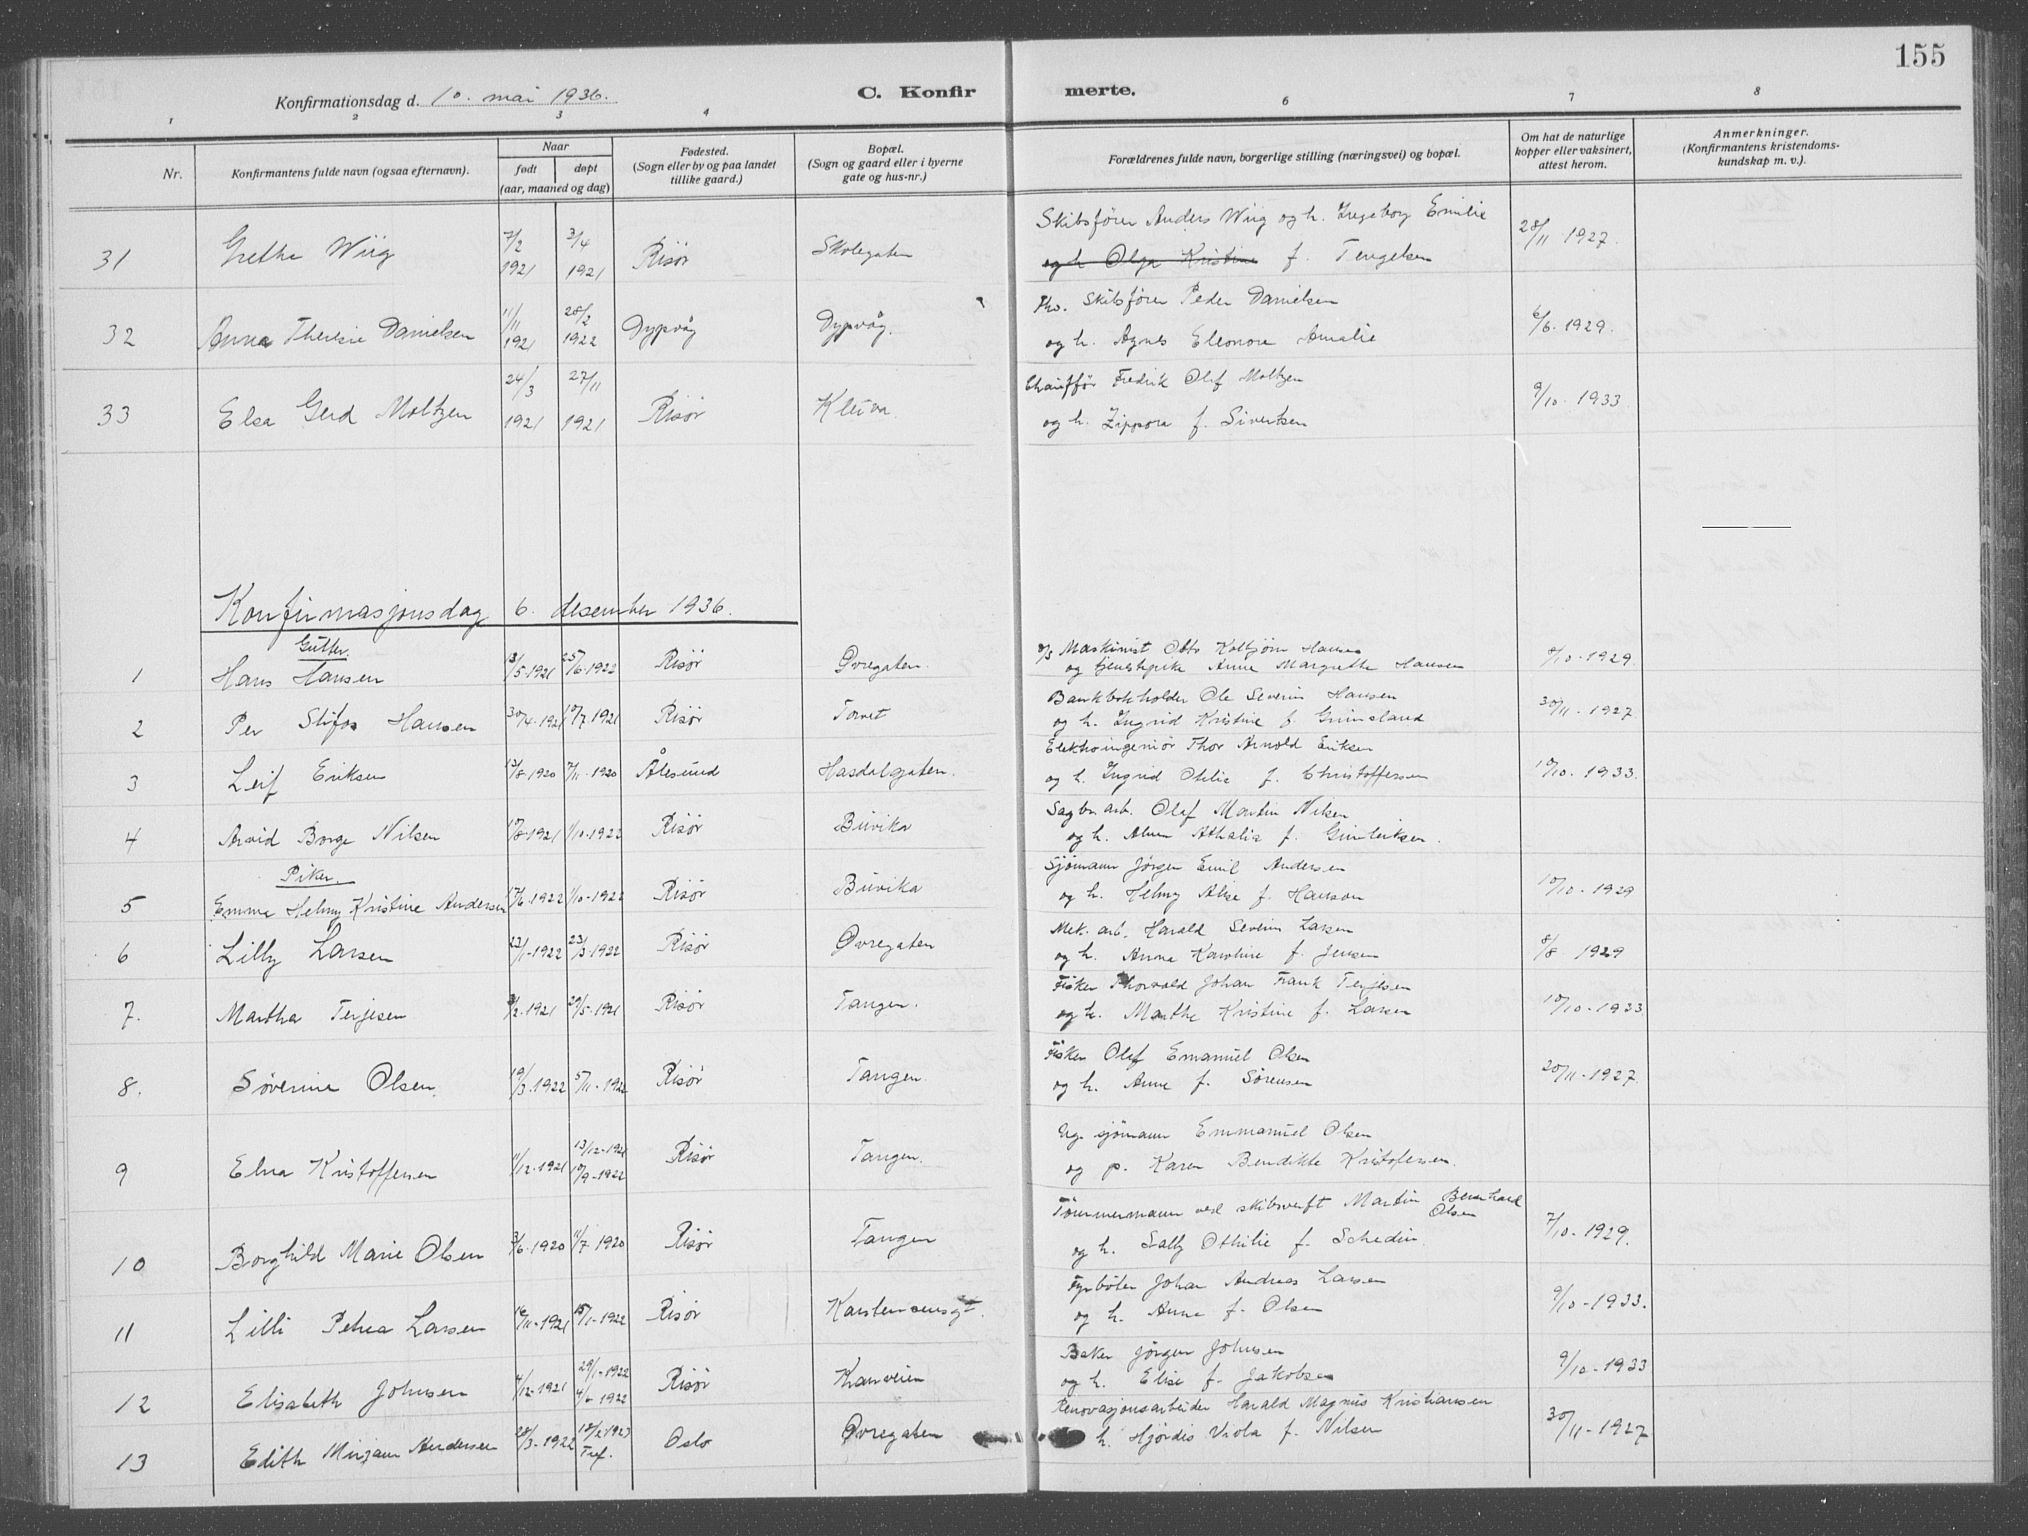 155
Konfirmationsdag d. 10. mai 1936. C. Konfirmerte.
1 2 3 4 6 7 8
Nr. Konfirmantens fulde navn (ogsaa efternavn). Naar født døpt (aar, maaned og dag) Fødested. (Sogn eller by og paa landet tillike gaard.) Bopæl. (Sogn og gaard eller i byerne gate og hus-nr.) Forældrenes fulde navn, borgerlige stilling (næringsvei) og bopæl. Om hat de naturlige kopper eller vaksinert, attest herom. Anmerkninger. (Konfirmantens kristendomskundskap m. v.).
31 Grethe Wiig 7/2 1921 3/4 1921 Risør Skolegaten Skibsfører Anders Wiig og h. Ingeborg Emilie
og h Olga Kristine f. Tengelsen 28/11 1927.
32 Anna Therese Danielsen 11/11 1921 28/2 1922 Dypvåg Dypvåg. Fhv. Skibsfører Peder Danielsen
og h. Agnes Eleonora Amalie 6/6. 1929.
33 Elsa Gerd Moltzen 24/3 1921 27/11 1921 Risør Kleiva Chauffør Fredrik Olaf Moltzen
og h. Zippora f. Sivertsen 9/10. 1933
Konfirmasjonsdag 6. desember 1936.
Gutter.
1 Hans Hansen 13/5-1921 25/6-1922 Risør Øvregaten. Maskinist Otto Kolbjørn Hansen
og tjenestepike Anne Margrethe Hansen 8/10-1929.
2 Per Hansen 30/4-1921 10/7-1921 Risør Torvet Bankbokholder Ole Severin Hansen
og h. Ingrid Kristine f. Grimsland 30/11-1927
3 Leif Eriksen 13/8-1920 7/11-1920 Ålesund Hasdalgaten. Elektroingeniør Thor Arnold Eriksen
og h. Ingrid Otilie f. Christoffersen 10/10. 1933.
4 Arvid Borge Nilsen 17/8-1921 1/10-1922 Risør Buvika Sagbr. arb. Olaf Martin Nilsen
og h. Athalia f.
Piker.
5 Emma Helmy Kristine Andersen 17/6-1922 1/10-1922 Risør Buvika Sjømann Jørgen Emil Andersen
og h. Helmy Alise f. Hanson 10/10-1929
6 Lilly Larsen 22/1-1922 23/3-1922 Risør Øvregaten Mek. arb. Harald Severin Larsen
og h. Anna Karoline f. Jensen 8/8 1929
7. Martha Terjesen 8/2-1921 29/5-1921 Risør Tangen. Fisker Thorvald Johan Frank Terjesen
og h. Marthe Kristine f. Larsen 10/10-1933
8. Søverine Olsen. 19/3-1922 5/11-1922 Risør Tangen. Fisker Olaf Emanuel Olsen
og h. Anne f. Sørensen 20/11-1927.
9 Elna Kristoffersen 11/12-1921 13/12-1921 10/9-1922 Risør Tangen. Ug. sjømann Emmanuel Olsen
og p. Karen Bendikte Kristofersen.
10 Borghild Marie Olsen 3/6-1920 11/7 1920 Risør Tangen Tømmermann ved skibsverft Martin Bernhard Olsen
og h. Sally Othilie f. Schedin. 7/10-1929.
11 Lilli Petrea Larsen 16/11-1921 15/1-1922 Risør Karstensensgt. Fyrbøter Johan Andreas Larsen
og h. Anna f. Olsen 9/10-1933.
12 Elisabeth Johnsen 4/12-1921 29/1-1922 4/6-1922 Risør Kranveien Baker Jørgen Johnsen
og h. Elise f. Jakobsen 9/10-1933
13 Edith Mirjam Andersen 28/3-1922 18/2 1923 Tref. Oslo Øvregaten Renovasjonsarbeider Harald Magnus Kristiansen
h. Hjørdis Viola f. Nilsen 30/11-1927